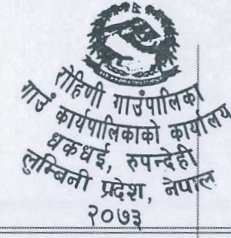 रोहिणी गाउंपालिका
गाउँ कार्यपालिकाको कार्यालय
धकधई, रुपन्देही
लुम्बिनी प्रदेश, नेपाल
२०७३